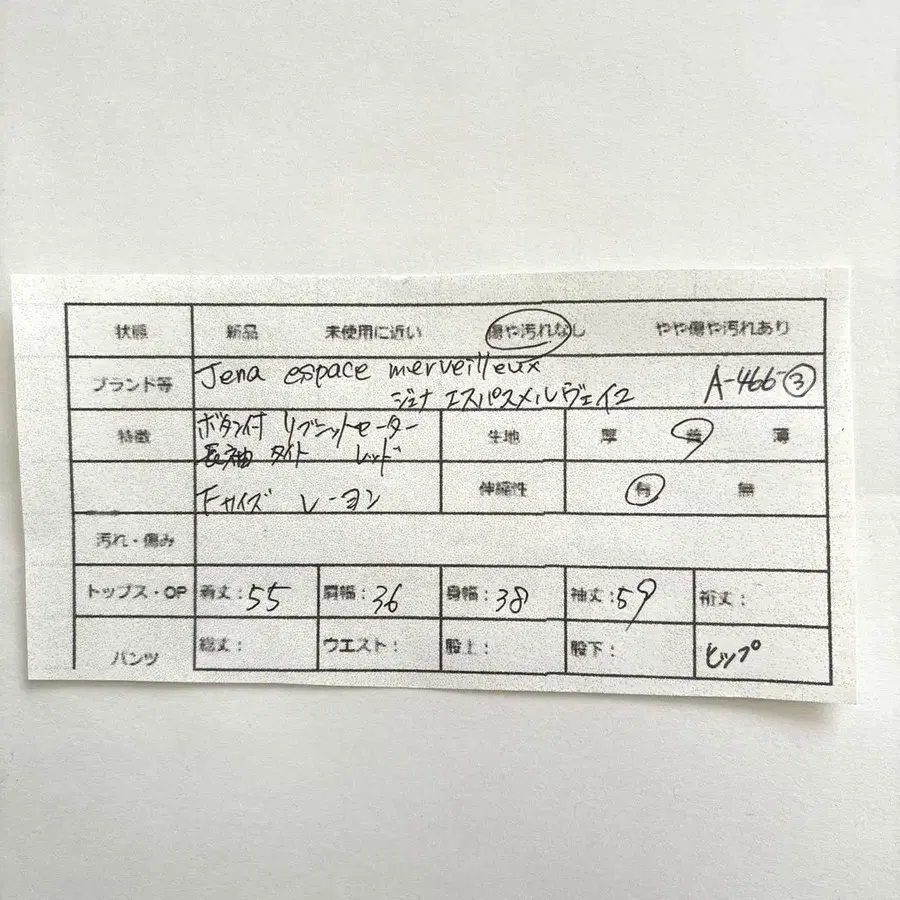 状態 新品 未使用に近い 傷や汚れなし やや傷や汚れあり
ブランド等 Jena espace merveilleux A-466-③
ジェナ エスパスメルヴェイユ
特徴 ボタン付 リブニットセーター 生地 厚 普 薄
長袖 タイト レッド
Fサイズ レーヨン 伸縮性 有 無
汚れ・傷み
トップス・OP 着丈:55 肩幅:36 身幅:38 袖丈:59 裄丈:
パンツ 総丈: ウエスト: 股上: 股下: ヒップ